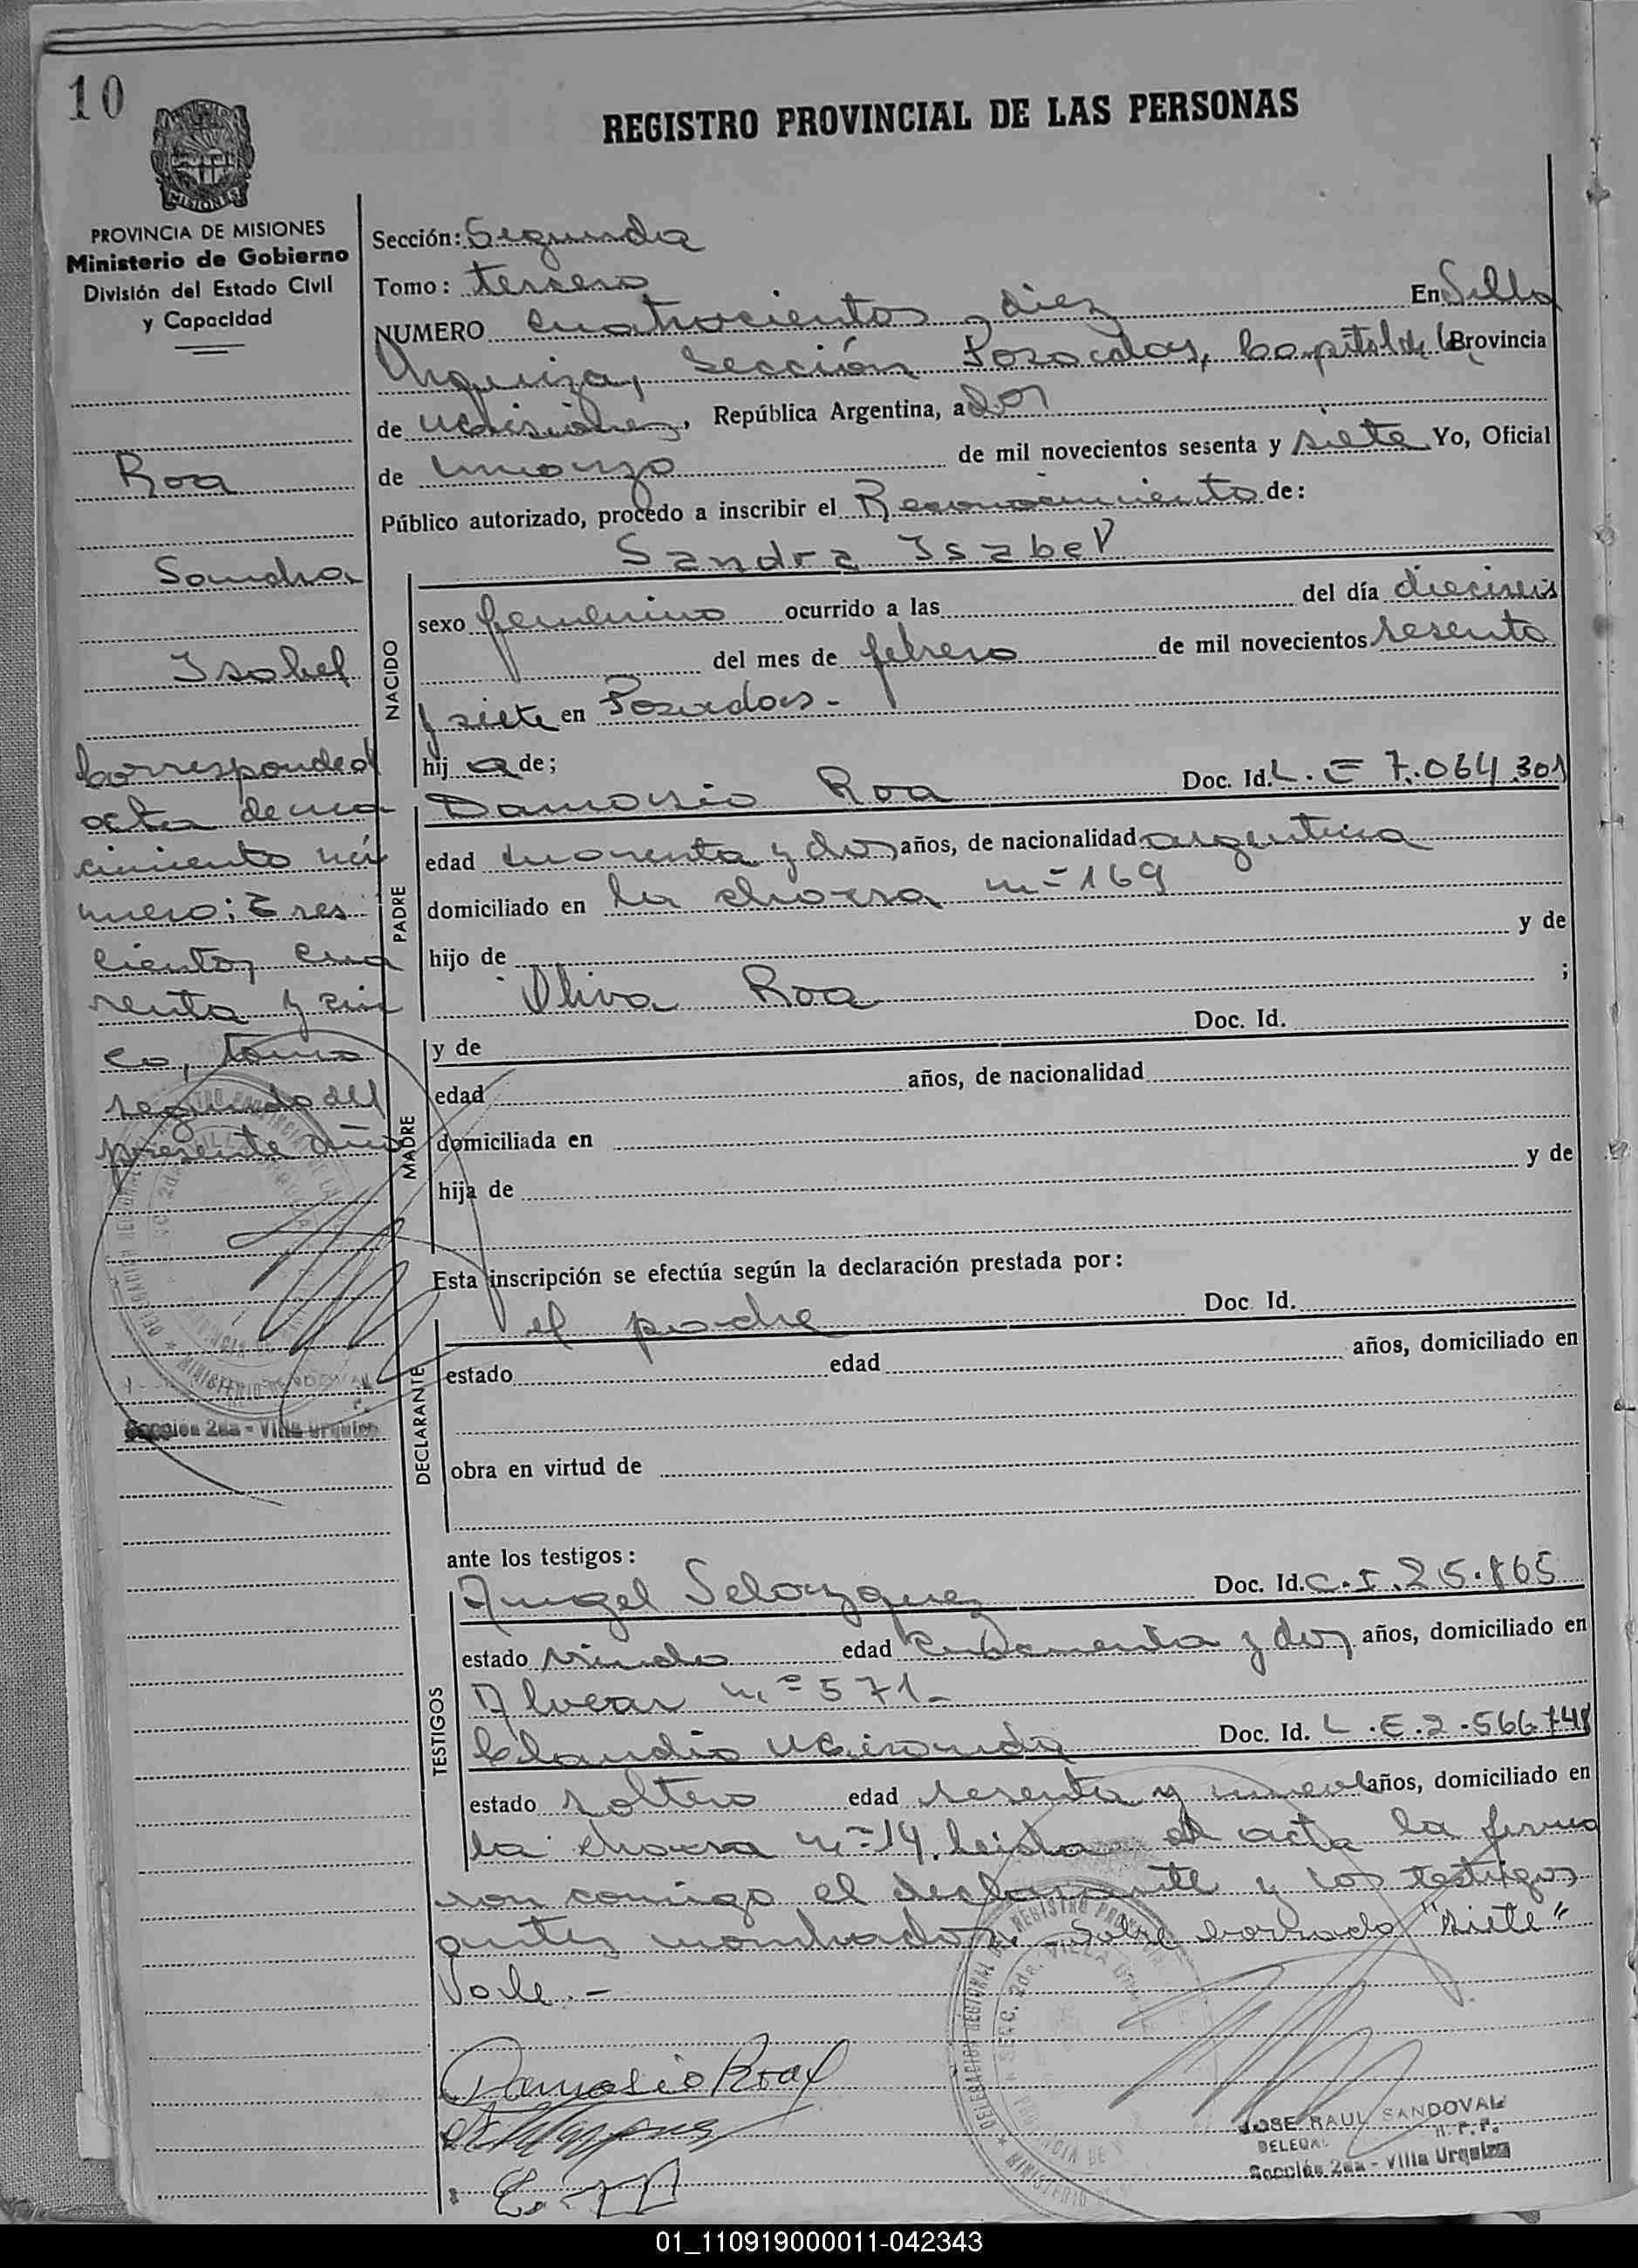 10
REGISTRO PROVINCIAL DE LAS PERSONAS
MISIONES
PROVINCIA DE MISIONES
Ministerio de Gobierno
División del Estado Civil
y Capacidad
Roa
Sandra
Isabel
Corresponde al
acta de na
cimiento nú
mero: Tres
cientos cua
renta y cin
co, tomo
segundo del
presente año
Sección 2da - Villa Urquiza
Sección: Segunda
Tomo: tercero
NUMERO cuatrocientos diez En Villa
Urquiza, Sección Posadas, Capital de la Provincia
de Misiones, República Argentina, a dos
de marzo de mil novecientos sesenta y siete Yo, Oficial
Público autorizado, procedo a inscribir el Reconocimiento de:
Sandra Isabel
NACIDO
sexo femenino ocurrido a las del día dieciseis
del mes de febrero de mil novecientos sesenta
y siete en Posadas.-
hij a de;
PADRE
Damasio Roa Doc. Id. L. E 7.064.301
edad cuarenta y dos años, de nacionalidad argentina
domiciliado en la chacra n= 169
hijo de y de
Oliva Roa ;
MADRE
y de Doc. Id.
edad años, de nacionalidad
domiciliada en
hija de y de
Esta inscripción se efectúa según la declaración prestada por:
DECLARANTE
el padre Doc Id.
estado edad años, domiciliado en
obra en virtud de
ante los testigos:
TESTIGOS
Angel Velazquez Doc. Id. C. I. 25.865
estado viudo edad y dos años, domiciliado en
Alvear n.º 571-
Claudio Miranda Doc. Id. L.E.2.566.748
estado soltero edad sesenta y nueve años, domiciliado en
la chacra n=14. Leida el acta la firma
ron comigo el declarante y los testigos
antes nombrados. Sobre borrado "siete"
Vale.-
Damasio Roa
DELEGACION REGIONAL DEL REGISTRO PROVINCIAL
SECC. 2da. VILLA URQUIZA
JOSE RAUL SANDOVAL
DELEGADO R.P.P.
Sección 2da - Villa Urquiza
01_110919000011-042343